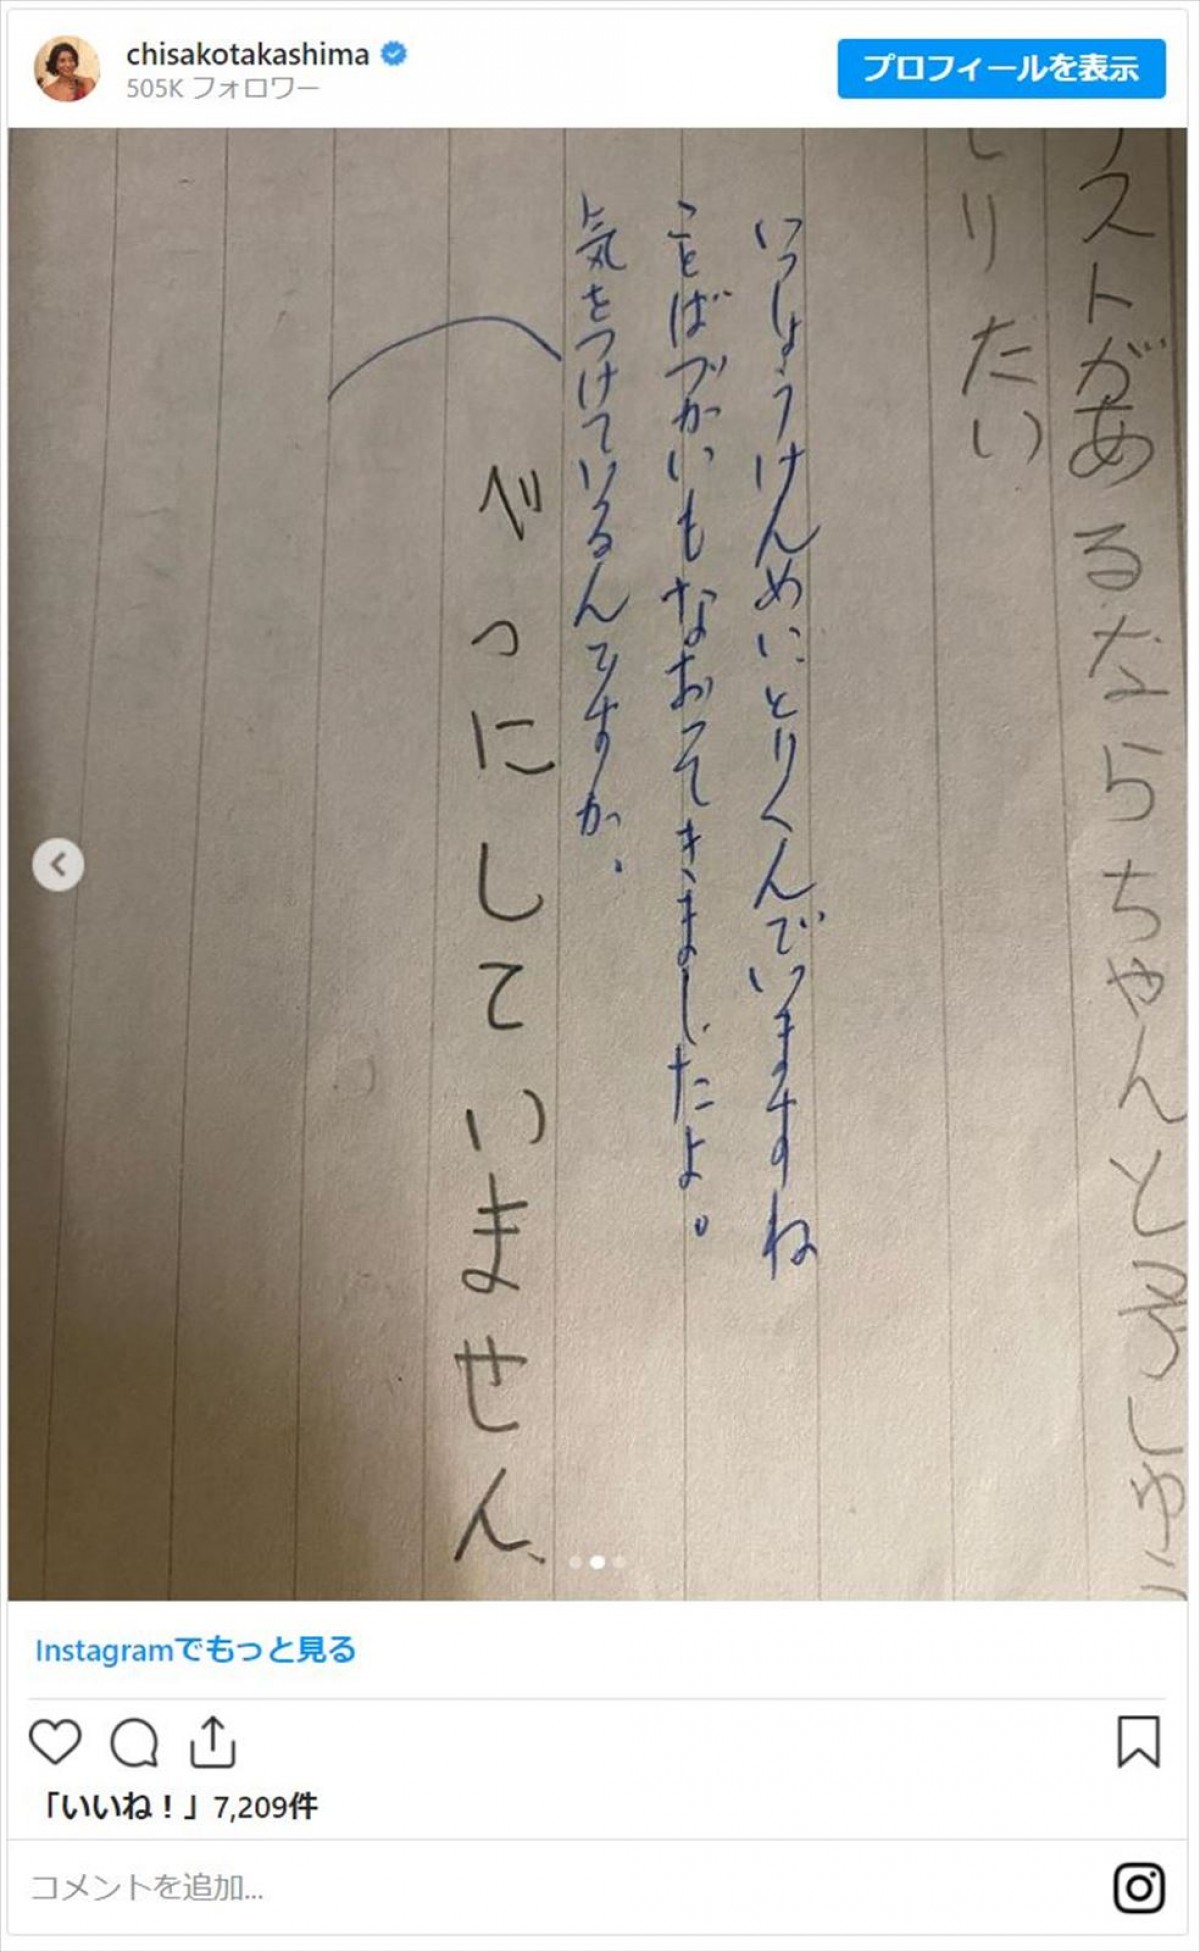 chisakotakashima
505K フォロワー
プロフィールを表示
ストがあるならちゃんと
りたい
いっしょうけんめいとりくんでいますね
ことばづかいもなおってきましたよ。
気をつけているんですか。
べつにしていません、
Instagramでもっと見る
「いいね！」7,209件
コメントを追加...